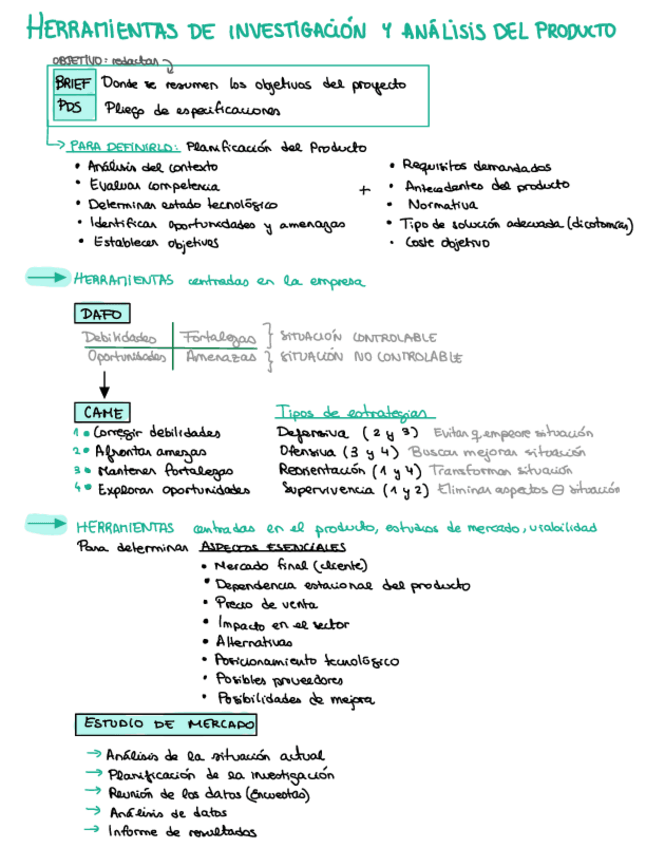 HERRAMIENTAS DE INVESTIGACIÓN Y ANÁLISIS DEL PRODUCTO
OBJETIVO: redactar
BRIEF Donde se resumen los objetivos del proyecto
PDS Pliego de especificaciones
PARA DEFINIRLO: Planificación del Producto
• Análisis del contexto
• Evaluar competencia
• Determinar estado tecnológico
• Identificar oportunidades y amenazas
• Establecer objetivos
+
• Requisitos demandados
• Antecedentes del producto
• Normativa
• Tipo de solución adecuada (dicotomías)
• Coste objetivo
→ HERRAMIENTAS centradas en la empresa
DAFO
Debilidades Fortalezas } SITUACIÓN CONTROLABLE
Oportunidades Amenazas } SITUACIÓN NO CONTROLABLE
CAME
1• Corregir debilidades
2• Afrontar amezas
3• Mantener fortalezas
4• Explorar oportunidades
Tipos de estrategias
Defensiva (2 y 3) Evitar q empeore situación
Ofensiva (3 y 4) Buscar mejorar situación
Reorientación (1 y 4) Transformar situación
Supervivencia (1 y 2) Eliminar aspectos ⊖ situación
→ HERRAMIENTAS centradas en el producto, estudios de mercado, viabilidad
Para determinar ASPECTOS ESENCIALES
• Mercado final (cliente)
• Dependencia estacional del producto
• Precio de venta
• Impacto en el sector
• Alternativas
• Posicionamiento tecnológico
• Posibles proveedores
• Posibilidades de mejora
ESTUDIO DE MERCADO
→ Análisis de la situación actual
→ Planificación de la investigación
→ Reunión de los datos (Encuestas)
→ Análisis de datos
→ Informe de resultados